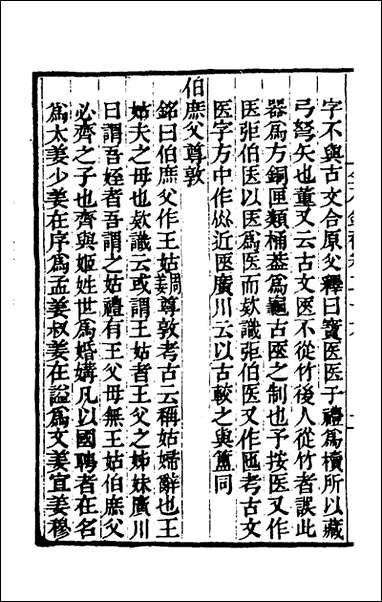 字不與古文合原父釋曰寶医医子禮爲櫝所以藏
弓弩矢也董又云古文医不從竹後人從竹者誤此
器爲方銅匣類桶葢爲龜古医之制也予按医又作
医弡伯医以医爲医而欵識弡伯医又作匜考古文
医字方中作 近医廣川云以古較之與簠同
伯庶父尊敦
銘曰伯庶父作王姑 尊敦考古云稱姑婦辭也王
姑夫之母也欵識云或謂王姑者王父之姊妹廣川
曰謂吾姪者吾謂之姑禮有王父母無王姑伯庶父
必齊之子也齊與姬姓世爲婚媾凡以國聘者在名
爲太姜少姜在序爲孟姜叔姜在謚爲文姜宣姜穆